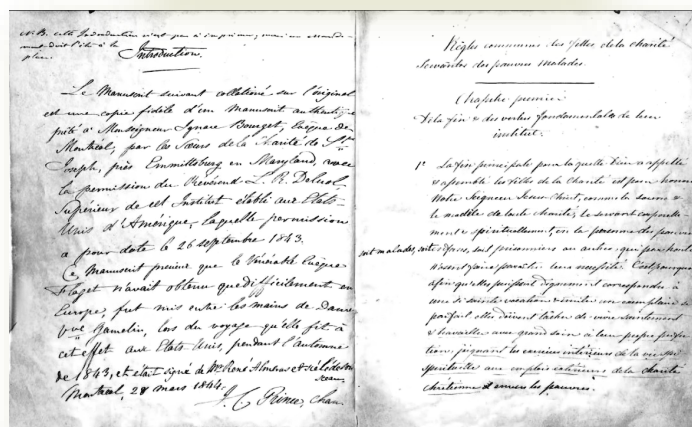 N.B. cette Introduction n'est pas à imprimer; mais un mandement doit l'être à la
place.
Introduction.
Le Manuscrit suivant collationné sur l'original
est une copie fidèle d'un Manuscrit authentique
prêté à Monseigneur Ignace Bourget, Evêque de
Montréal, par les Sœurs de la Charité de St.
Joseph, près Emmittsburg en Maryland, avec
la permission du Révérend L. R. Deluol,
Supérieur de cet Institut établi aux Etats-
Unis d'Amérique, laquelle permission
a pour date le 26 septembre 1843.
Ce Manuscrit précieux que le Vénérable Evêque
Flaget n'avait obtenu que difficilement en
Europe, fut mis entre les mains de Dame
Vve Gamelin, lors du voyage qu'elle fit à
cet effet aux Etats Unis, pendant l'automne
de 1843, et était signé de
Montréal, 28 mars 1844.
J. C. Prince, Chan.
Règles communes des filles de la charité
Servantes des pauvres malades.
Chapitre premier
De la fin & des vertus fondamentales de leur
institut.
1º La fin principale pour laquelle Dieu a appellé
& assemblé les filles de la Charité est pour honorer
Notre Seigneur Jesus Christ, comme la source &
le modèle de toute Charité, le servant corporelle
ment & spirituellement, en la personne des pauvres
soit malades, soit enfans, soit prisonniers ou autres, qui par honte
n'osent faire paraître leur necessité. C'est pourquoi
afin qu'elles puissent dignement correspondre à
une si sainte vocation & imiter un exemplaire si
parfait elles doivent tâcher de vivre saintement
& travailler avec grand soin à leur propre perfec
tion joignant les exercices intérieurs de la vie
spirituelle aux emplois extérieurs de la charité
chrétienne envers les pauvres.